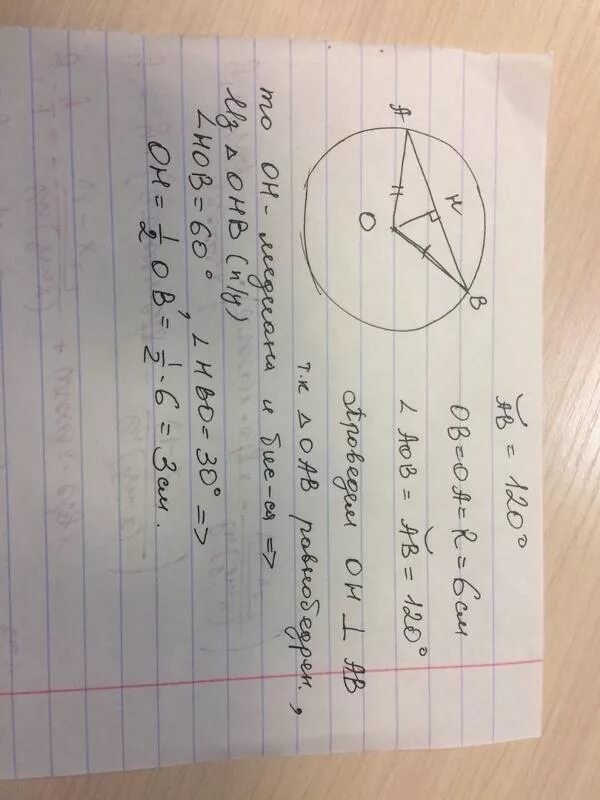 A
H
B
O
ÃB = 120°
OB=OA=R=6см
∠AOB = ÃB = 120°
Проведем OH ⊥ AB
т.к △OAB равнобедрен.,
то OH - медиана и бис-са =>
Из △OHB (п/у)
∠HOB = 60° ∠HBO = 30° =>
OH = 1/2 OB = 1/2 · 6 = 3см.